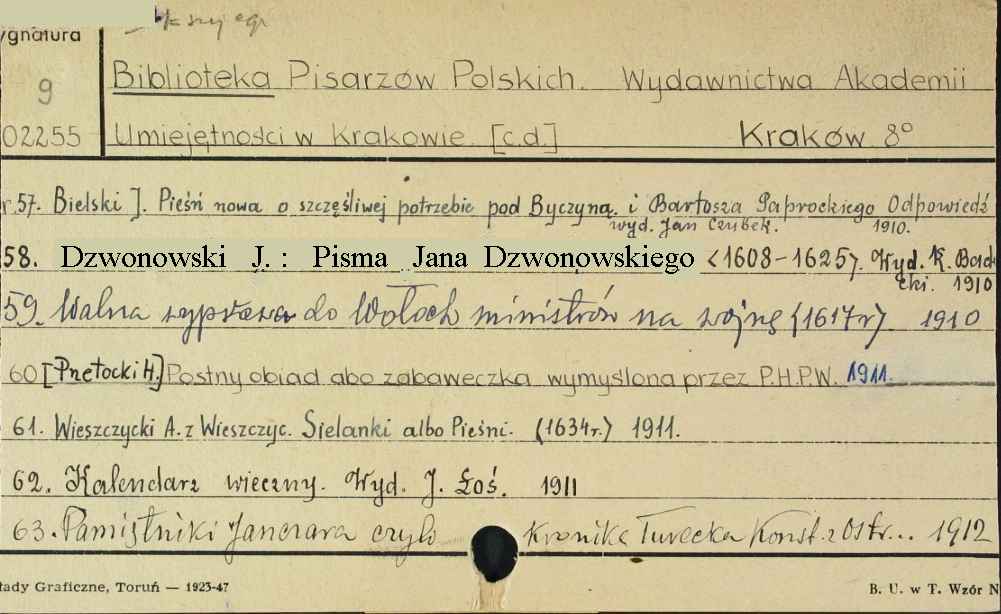 ygnatura
9
02255
Biblioteka Pisarzów Polskich. Wydawnictwa Akademii
Umiejętności w Krakowie. [c.d.] Kraków 8°
r 57. Bielski J. Pieśń nowa o szczęśliwej potrzebie pod Byczyną. i Bartosza Paprockiego Odpowiedź
wyd. Jan Czubek. 1910.
58. Dzwonowski J. : Pisma Jana Dzwonowskiego <1608-1625>. Wyd. K. Bade
cki. 1910
59. Walna wyprawa do Wołoch ministrów na wojnę (1617 r) 1910
60 [Przetocki H.] Postny obiad abo zabaweczka wymyślona przez P.H.P.W. 1911.
61. Wieszczycki A. z Wieszczyc. Sielanki albo Pieśni. (1634 r.) 1911.
62. Kalendarz wieczny. Wyd. J. Łoś. 1911
63. Pamiętniki Janczara czyli Kronika Turecka Konst. z Ostr... 1912
łady Graficzne, Toruń — 1923-47
B. U. w T. Wzór N